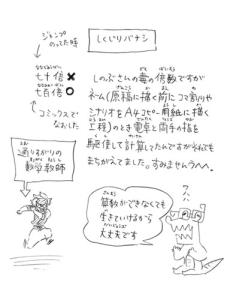 しくじりバナシ
ジャンプのってた時
↓
七十倍 ✖
七百倍 〇
↑
コミックスでなおした
しのぶさんの毒の倍数ですが
ネーム(原稿に描く前にコマ割りや
シナリオをA4コピー用紙に描く
工程)のとき電卓と両手の指を
駆使して計算してたんですがそれでも
まちがえてました。すみませんうへへ。
通りすがりの
数学教師
算数ができなくても
生きていけるから
大丈夫です